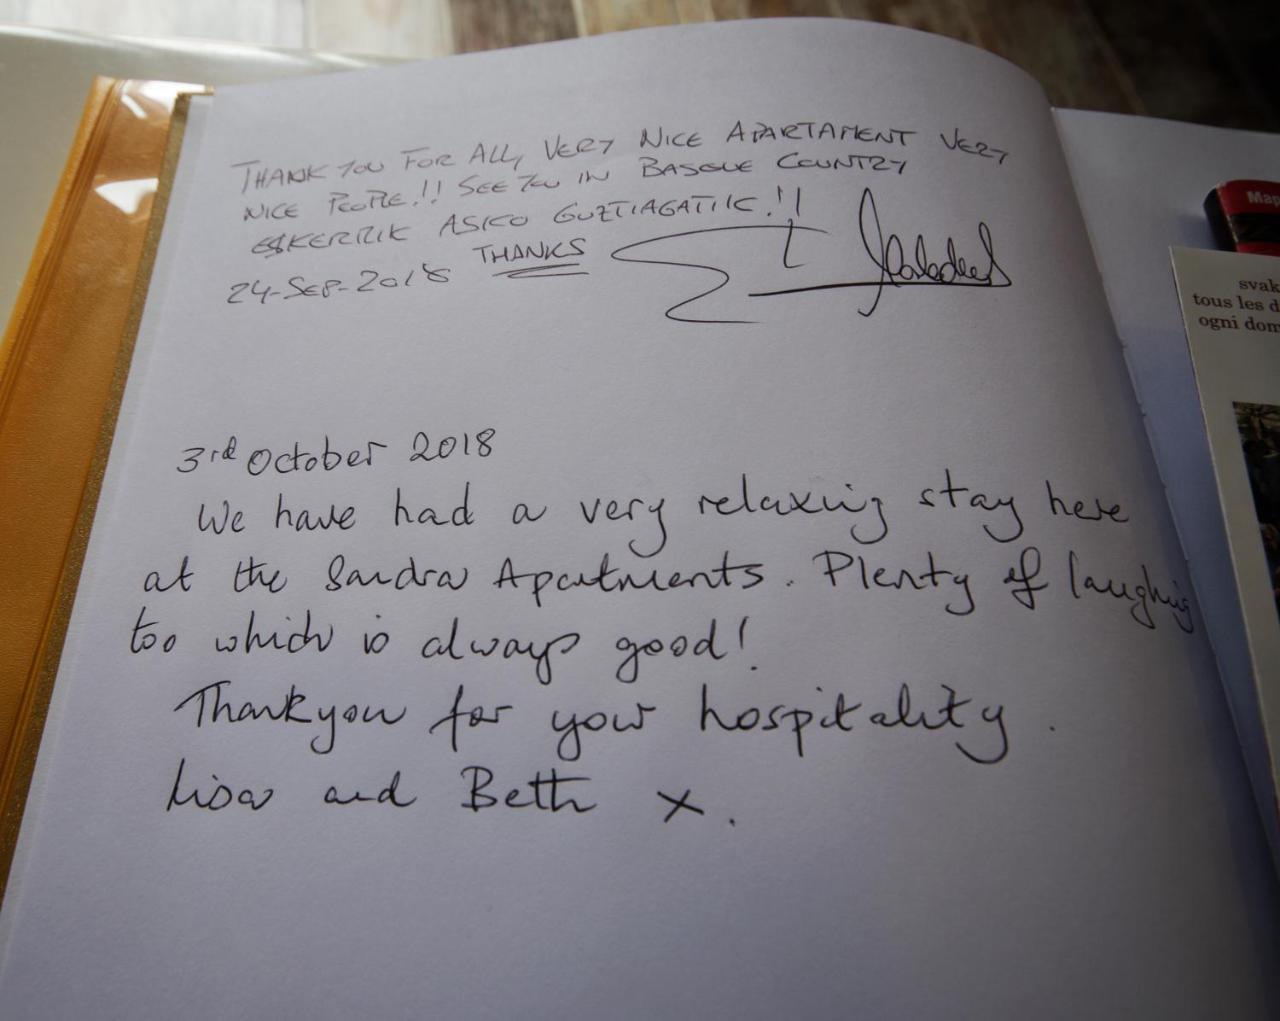 THANK YOU FOR ALL, VERY NICE APARTAMENT VERY
NICE PEOPLE!! SEE YOU IN BASQUE COUNTRY
ESKERRIK ASKO GUZTIAGATIK!!
THANKS
24-SEP-2018
3rd October 2018
We have had a very relaxing stay here
at the Sandra Apartments. Plenty of laughing
too which is always good!
Thankyou for your hospitality.
Lisa and Beth x.
Map
svak
tous les d
ogni dom